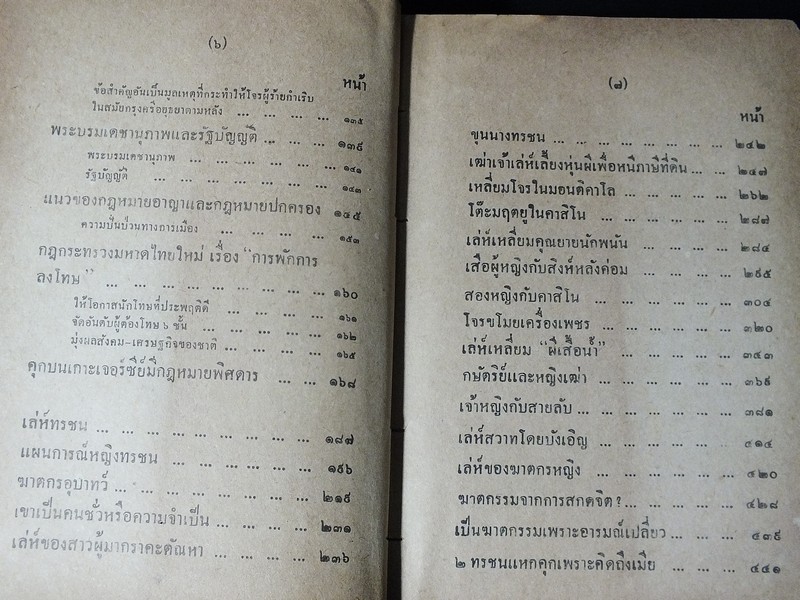 (๖)
หน้า
ข้อสำคัญอันเป็นมูลเหตุที่กระทำให้โจรผู้ร้ายกำเริบ
ในสมัยกรุงศรีอยุธยาตามหลัง ... ... ... ... ๑๓๕
พระบรมเดชานุภาพและรัฐบัญญัติ ... ... ... ๑๓๙
พระบรมเดชานุภาพ ... ... ... ... ... ๑๔๑
รัฐบัญญัติ ... ... ... ... ... ... ๑๔๓
แนวของกฎหมายอาญาและกฎหมายปกครอง ๑๔๕
ความปั่นป่วนทางการเมือง ... ... ... ... ๑๕๓
กฎกระทรวงมหาดไทยใหม่ เรื่อง "การพักการ
ลงโทษ" ... ... ... ... ... ... ... ... ๑๖๐
ให้โอกาสนักโทษที่ประพฤติดี ... ... ... ... ๑๖๑
จัดอันดับผู้ต้องโทษ ๖ ชั้น ... ... ... ... ๑๖๒
มุ่งผลสังคม-เศรษฐกิจของชาติ ... ... ... ... ๑๖๕
คุกบนเกาะเจอร์ซีย์มีกฎหมายพิศดาร ... ... ๑๖๘
เล่ห์ทรชน ... ... ... ... ... ... ... ๑๘๗
แผนการณ์หญิงทรชน ... ... ... ... ... ๑๙๖
ฆาตกรอุบาทว์ ... ... ... ... ... ... ๒๑๙
เขาเป็นคนชั่วหรือความจำเป็น ... ... ... ๒๓๑
เล่ห์ของสาวผู้มากราคะตัณหา ... ... ... ๒๓๖
(๘)
หน้า
ขุนนางทรชน ... ... ... ... ... ... ๒๔๒
เฒ่าเจ้าเล่ห์เลี้ยงหุ่นผีเพื่อหนีภาษีที่ดิน ... ... ๒๔๗
เหลี่ยมโจรในมอนติคาโล ... ... ... ... ๒๖๒
โต๊ะมฤตยูในคาสิโน ... ... ... ... ... ๒๘๗
เล่ห์เหลี่ยมคุณยายนักพนัน ... ... ... ... ๒๘๔
เสือผู้หญิงกับสิงห์หลังค่อม ... ... ... ... ๒๙๕
สองหญิงกับคาสิโน ... ... ... ... ... ๓๐๔
โจรขโมยเครื่องเพชร ... ... ... ... ... ๓๒๐
เล่ห์เหลี่ยม "ผีเสื้อน้ำ" ... ... ... ... ๓๔๓
กษัตริย์และหญิงเฒ่า ... ... ... ... ... ๓๖๙
เจ้าหญิงกับสายลับ ... ... ... ... ... ๓๘๑
เล่ห์สวาทโดยบังเอิญ ... ... ... ... ... ๔๑๔
เล่ห์ของฆาตกรหญิง ... ... ... ... ... ๔๒๐
ฆาตกรรมจากการสกดจิต? ... ... ... ... ๔๒๘
เป็นฆาตกรรมเพราะอารมณ์เปลี่ยว ... ... ... ๔๓๙
๒ ทรชนแหกคุกเพราะคิดถึงเมีย ... ... ... ๔๔๑